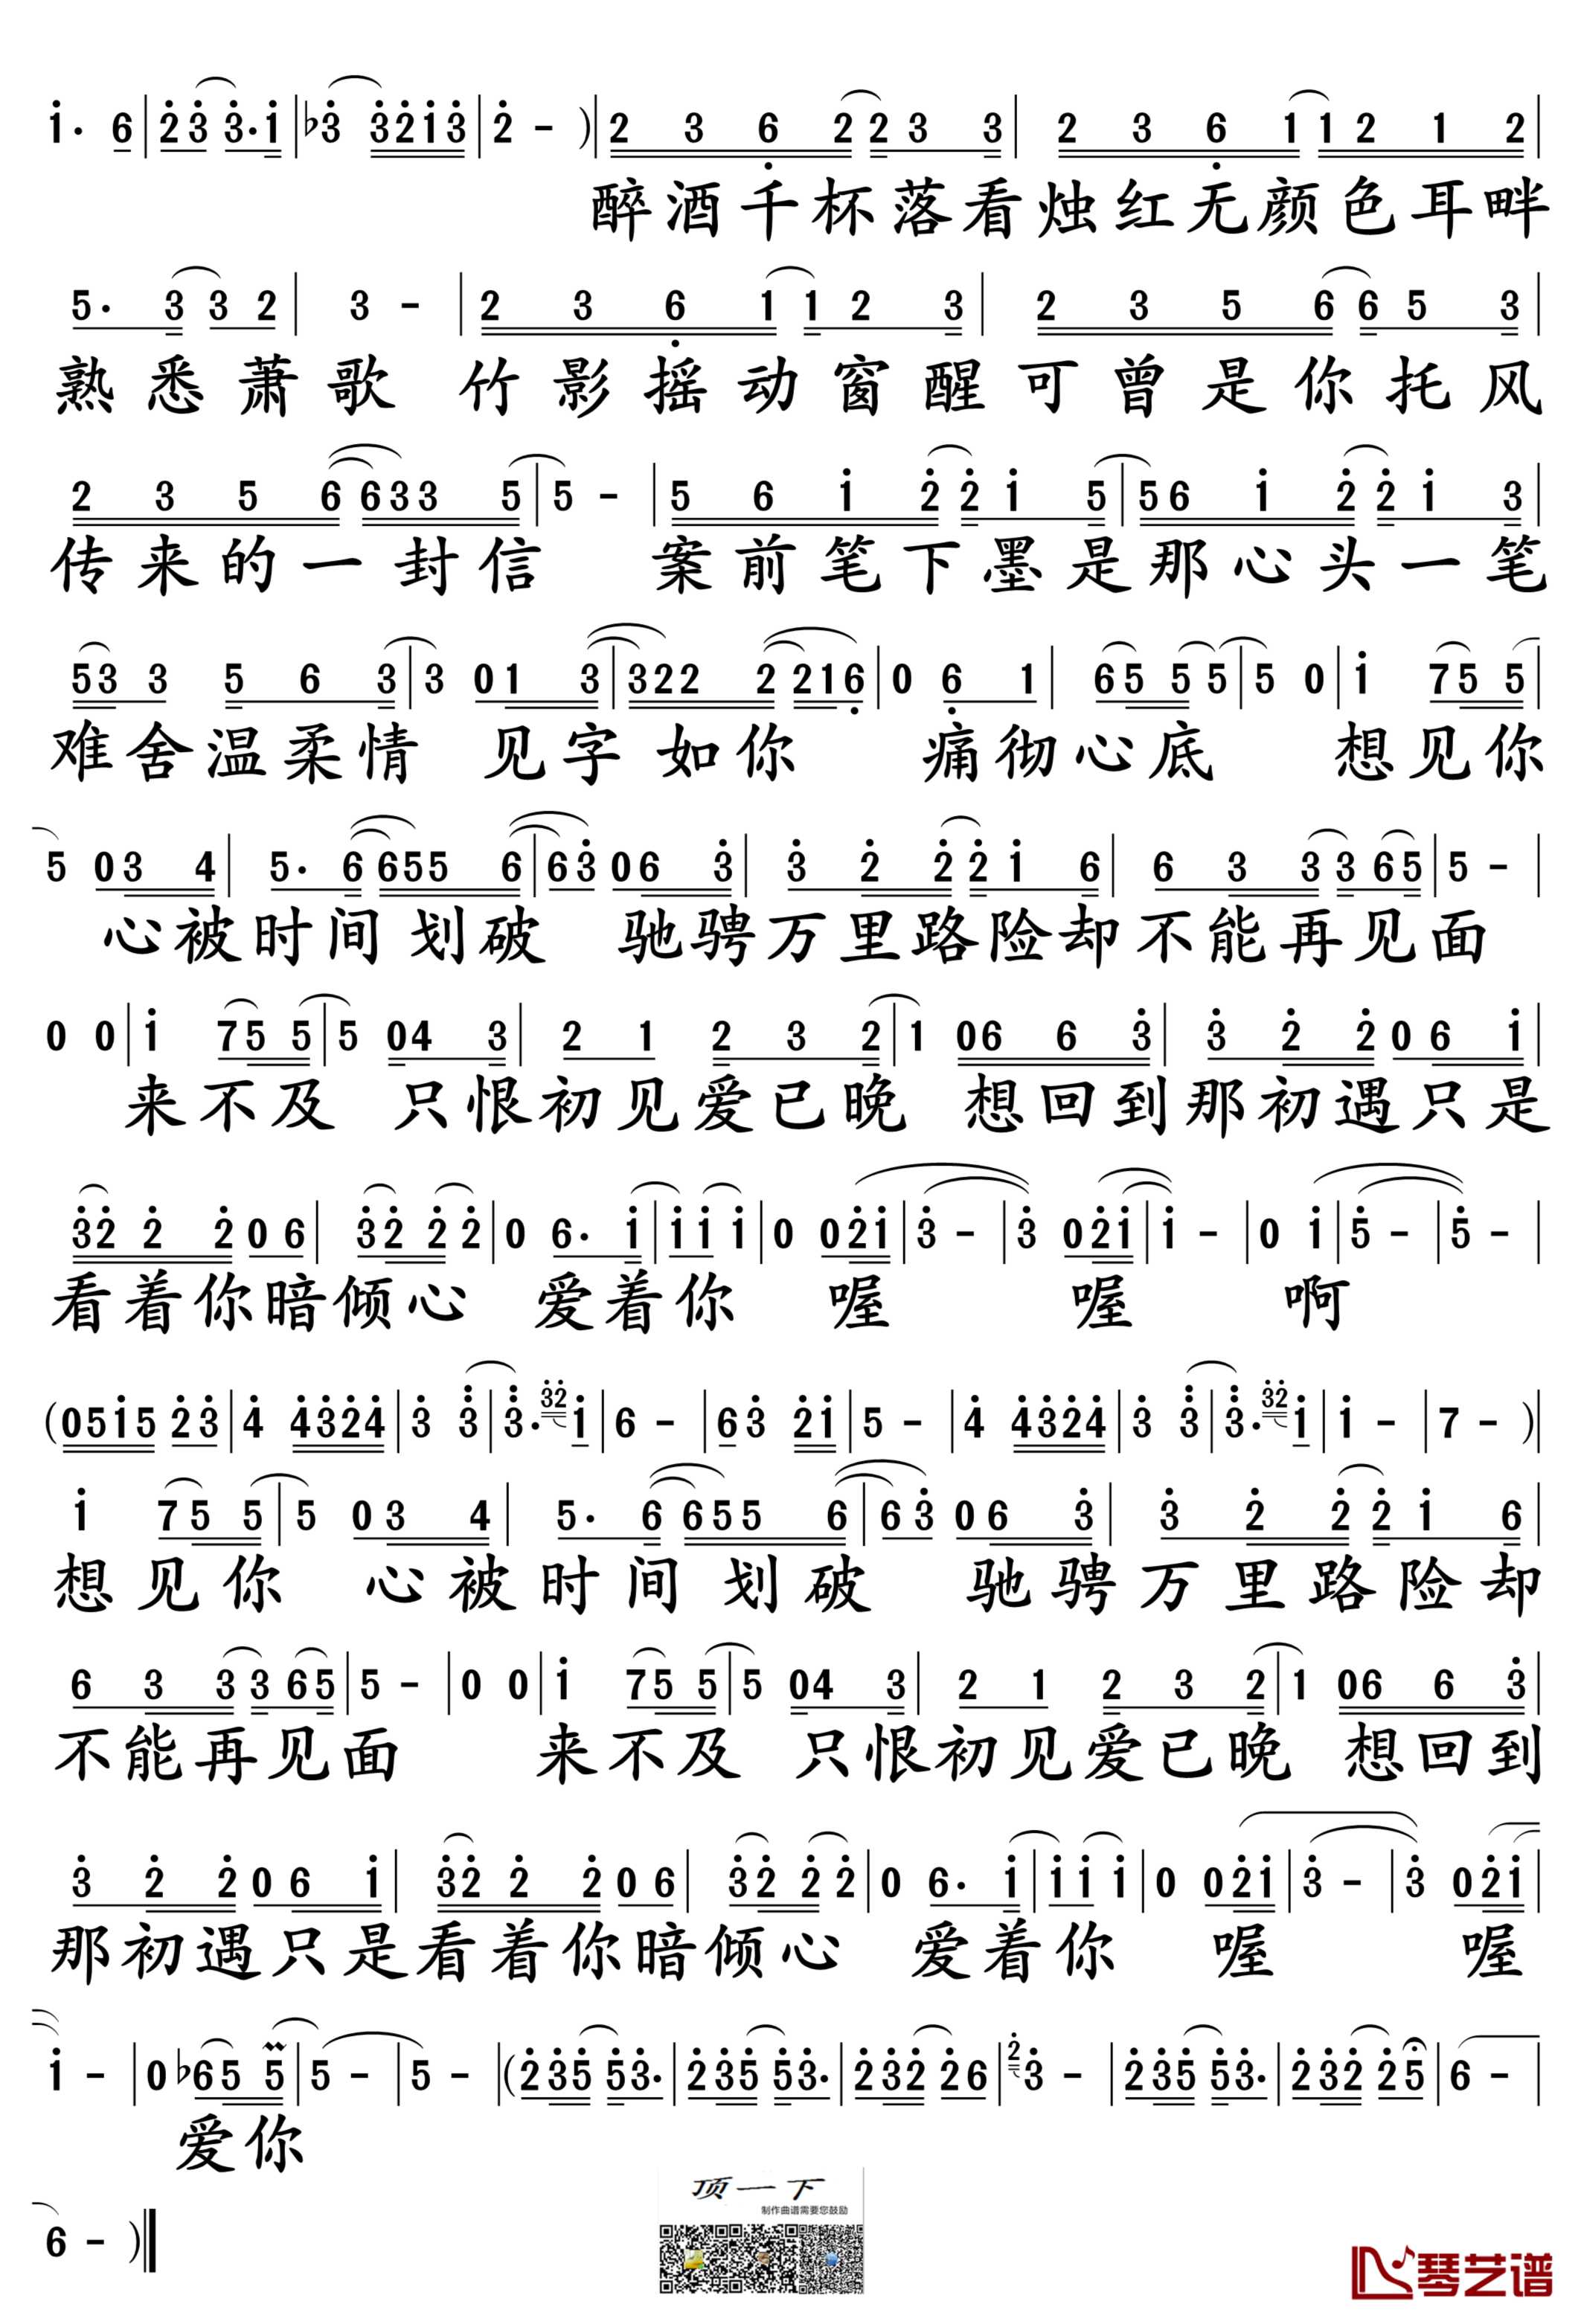 1̇· 6 | 2̇ 3̇ 3̇· 1̇ | ♭3̇ 3̇ 2̇ 1̇ 3̇ | 2̇ - ) | 2 3 6̣ 2 2 3 3 | 2 3 6̣ 1 1 2 1 2 |
醉酒千杯落看烛红无颜色耳畔
5· 3 3 2 | 3 - | 2 3 6̣ 1 1 2 3 | 2 3 5 6 6 5 3 |
熟悉萧歌 竹影摇动窗醒可曾是你托风
2 3 5 6 6 3 3 5 | 5 - | 5 6 1̇ 2̇ 2̇ 1̇ 5 | 5 6 1̇ 2̇ 2̇ 1̇ 3 |
传来的一封信 案前笔下墨是那心头一笔
5 3 3 5 6 3 | 3 0 1 3 | 3 2 2 2 2 1 6̣ | 0 6̣ 1 | 6 5 5 5 | 5 0 | 1̇ 7 5 5 |
难舍温柔情 见字如你 痛彻心底 想见你
5 0 3 4 | 5· 6 6 5 5 6 | 6 3̇ 0 6 3̇ | 3̇ 2̇ 2̇ 2̇ 1̇ 6 | 6 3 3 3 6 5 | 5 - |
心被时间划破 驰骋万里路险却不能再见面
0 0 | 1̇ 7 5 5 | 5 0 4 3 | 2 1 2 3 2 | 1 0 6 6 3̇ | 3̇ 2̇ 2̇ 0 6 1̇ |
来不及 只恨初见爱已晚 想回到那初遇只是
3̇ 2̇ 2̇ 2̇ 0 6 | 3̇ 2̇ 2̇ 2̇ | 0 6· 1̇ | 1̇ 1̇ 1̇ | 0 0 2̇ 1̇ | 3̇ - | 3̇ 0 2̇ 1̇ | 1̇ - | 0 1̇ | 5̇ - | 5̇ - |
看着你暗倾心 爱着你 喔 喔 啊
( 0 5 1̇ 5 2̇ 3̇ | 4̇ 4̇ 3̇ 2̇ 4̇ | 3̇ 3̈ | 3̈· 3̇2̇ 1̇ | 6 - | 6 3̇ 2̇ 1̇ | 5 - | 4̇ 4̇ 3̇ 2̇ 4̇ | 3̇ 3̈ | 3̈· 3̇2̇ 1̇ | 1̇ - | 7 - ) |
1̇ 7 5 5 | 5 0 3 4 | 5· 6 6 5 5 6 | 6 3̇ 0 6 3̇ | 3̇ 2̇ 2̇ 2̇ 1̇ 6 |
想见你 心被时间划破 驰骋万里路险却
6 3 3 3 6 5 | 5 - | 0 0 | 1̇ 7 5 5 | 5 0 4 3 | 2 1 2 3 2 | 1 0 6 6 3̇ |
不能再见面 来不及 只恨初见爱已晚 想回到
3̇ 2̇ 2̇ 0 6 1̇ | 3̇ 2̇ 2̇ 2̇ 0 6 | 3̇ 2̇ 2̇ 2̇ | 0 6· 1̇ | 1̇ 1̇ 1̇ | 0 0 2̇ 1̇ | 3̇ - | 3̇ 0 2̇ 1̇ |
那初遇只是看着你暗倾心 爱着你 喔 喔
1̇ - | 0 ♭6 5 5 | 5 - | 5 - | ( 2̇ 3̇ 5̇ 5̇ 3̇· | 2̇ 3̇ 5̇ 5̇ 3̇· | 2̇ 3̇ 2̇ 2̇ 6 | 2̇ 3̇ - | 2̇ 3̇ 5̇ 5̇ 3̇· | 2̇ 3̇ 2̇ 2̇ 5 | 6 - |
爱你
6 - ) ‖
顶一下
制作曲谱需要您鼓励
琴艺谱